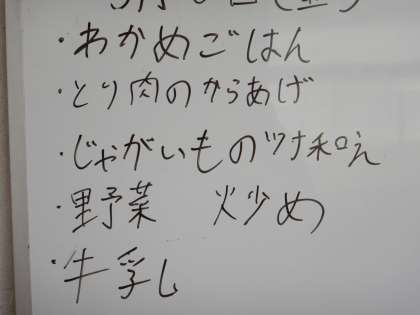 ・わかめごはん
・とり肉のからあげ
・じゃがいものツナ和え
・野菜 炒め
・牛乳